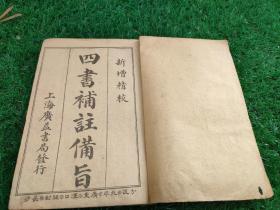 新增精校
四書補註備旨
上海廣益書局發行